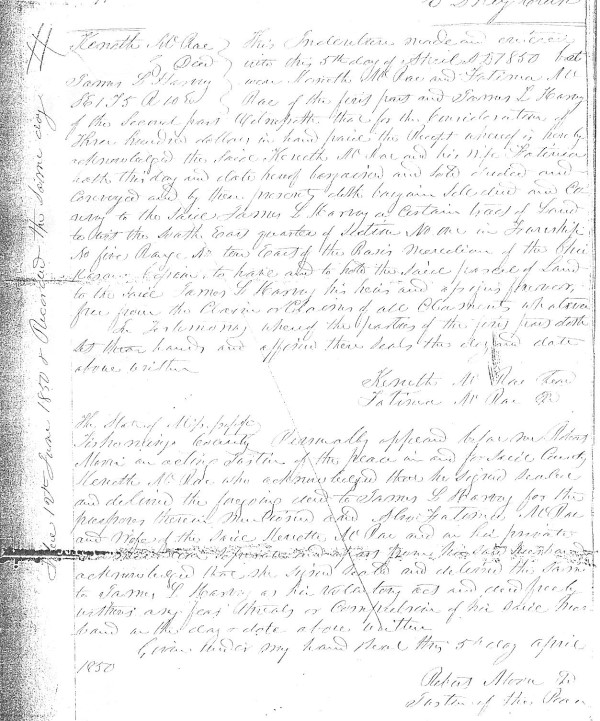 Keneth McRae
Deed
James L Harvy
S61 T5 R10E
This Indenture made and entered
into this 5th day of April AD 1850 bet
ween Keneth McRae and Fatima Mc
Rae of the first part and James L Harvy
of the Second part Witnesseth that for the Consideration of
three hundred dollars in hand paid the receipt whereof is hereby
acknowledged the Said Keneth McRae and his wife Fatima
hath this day and date hereof bargained and Sold Deeded and
Conveyed and by these presents doth bargain Sell deed and Co
nvey to the Said James L Harvy a Certain tract of Land
to wit the South East quarter of Section No one in Township
No five Range No ten East of the Basis Meredian of the Chic
kesaw Cession to have and to hold the Said parcel of Land
to the Said James L Harvy his heirs and assigns forever
free from the Claim or Claims of all Claiments whatever
In Testemony whereof the parties of the first part doth
Set there hands and affixed there Seals this day and date
above written
Keneth McRae Seal
Fatima McRae
The State of Mississippi
Tishomingo County Personally appeared before me Robert
Moore an acting Justice of the peace in and for Said County
Keneth McRae who acknowledged that he Signed Sealed
and delivered the foregoing deed to James L Harvy for the
purposes therein mentioned and Also Fatima McRae
and Wife of the Said Keneth McRae and on her private
examination apart from her Said husband
acknowledged that she Signed Sealed and delivered the Same
to James L Harvy as her voluntary act and deed freely
without any fear threats or Compulsion of her Said hus
band on the day & date above written
Given under my hand & Seal this 5th day April
1850
Robert Moore
Justice of the Peace
June 1850 & Recorded the Same day